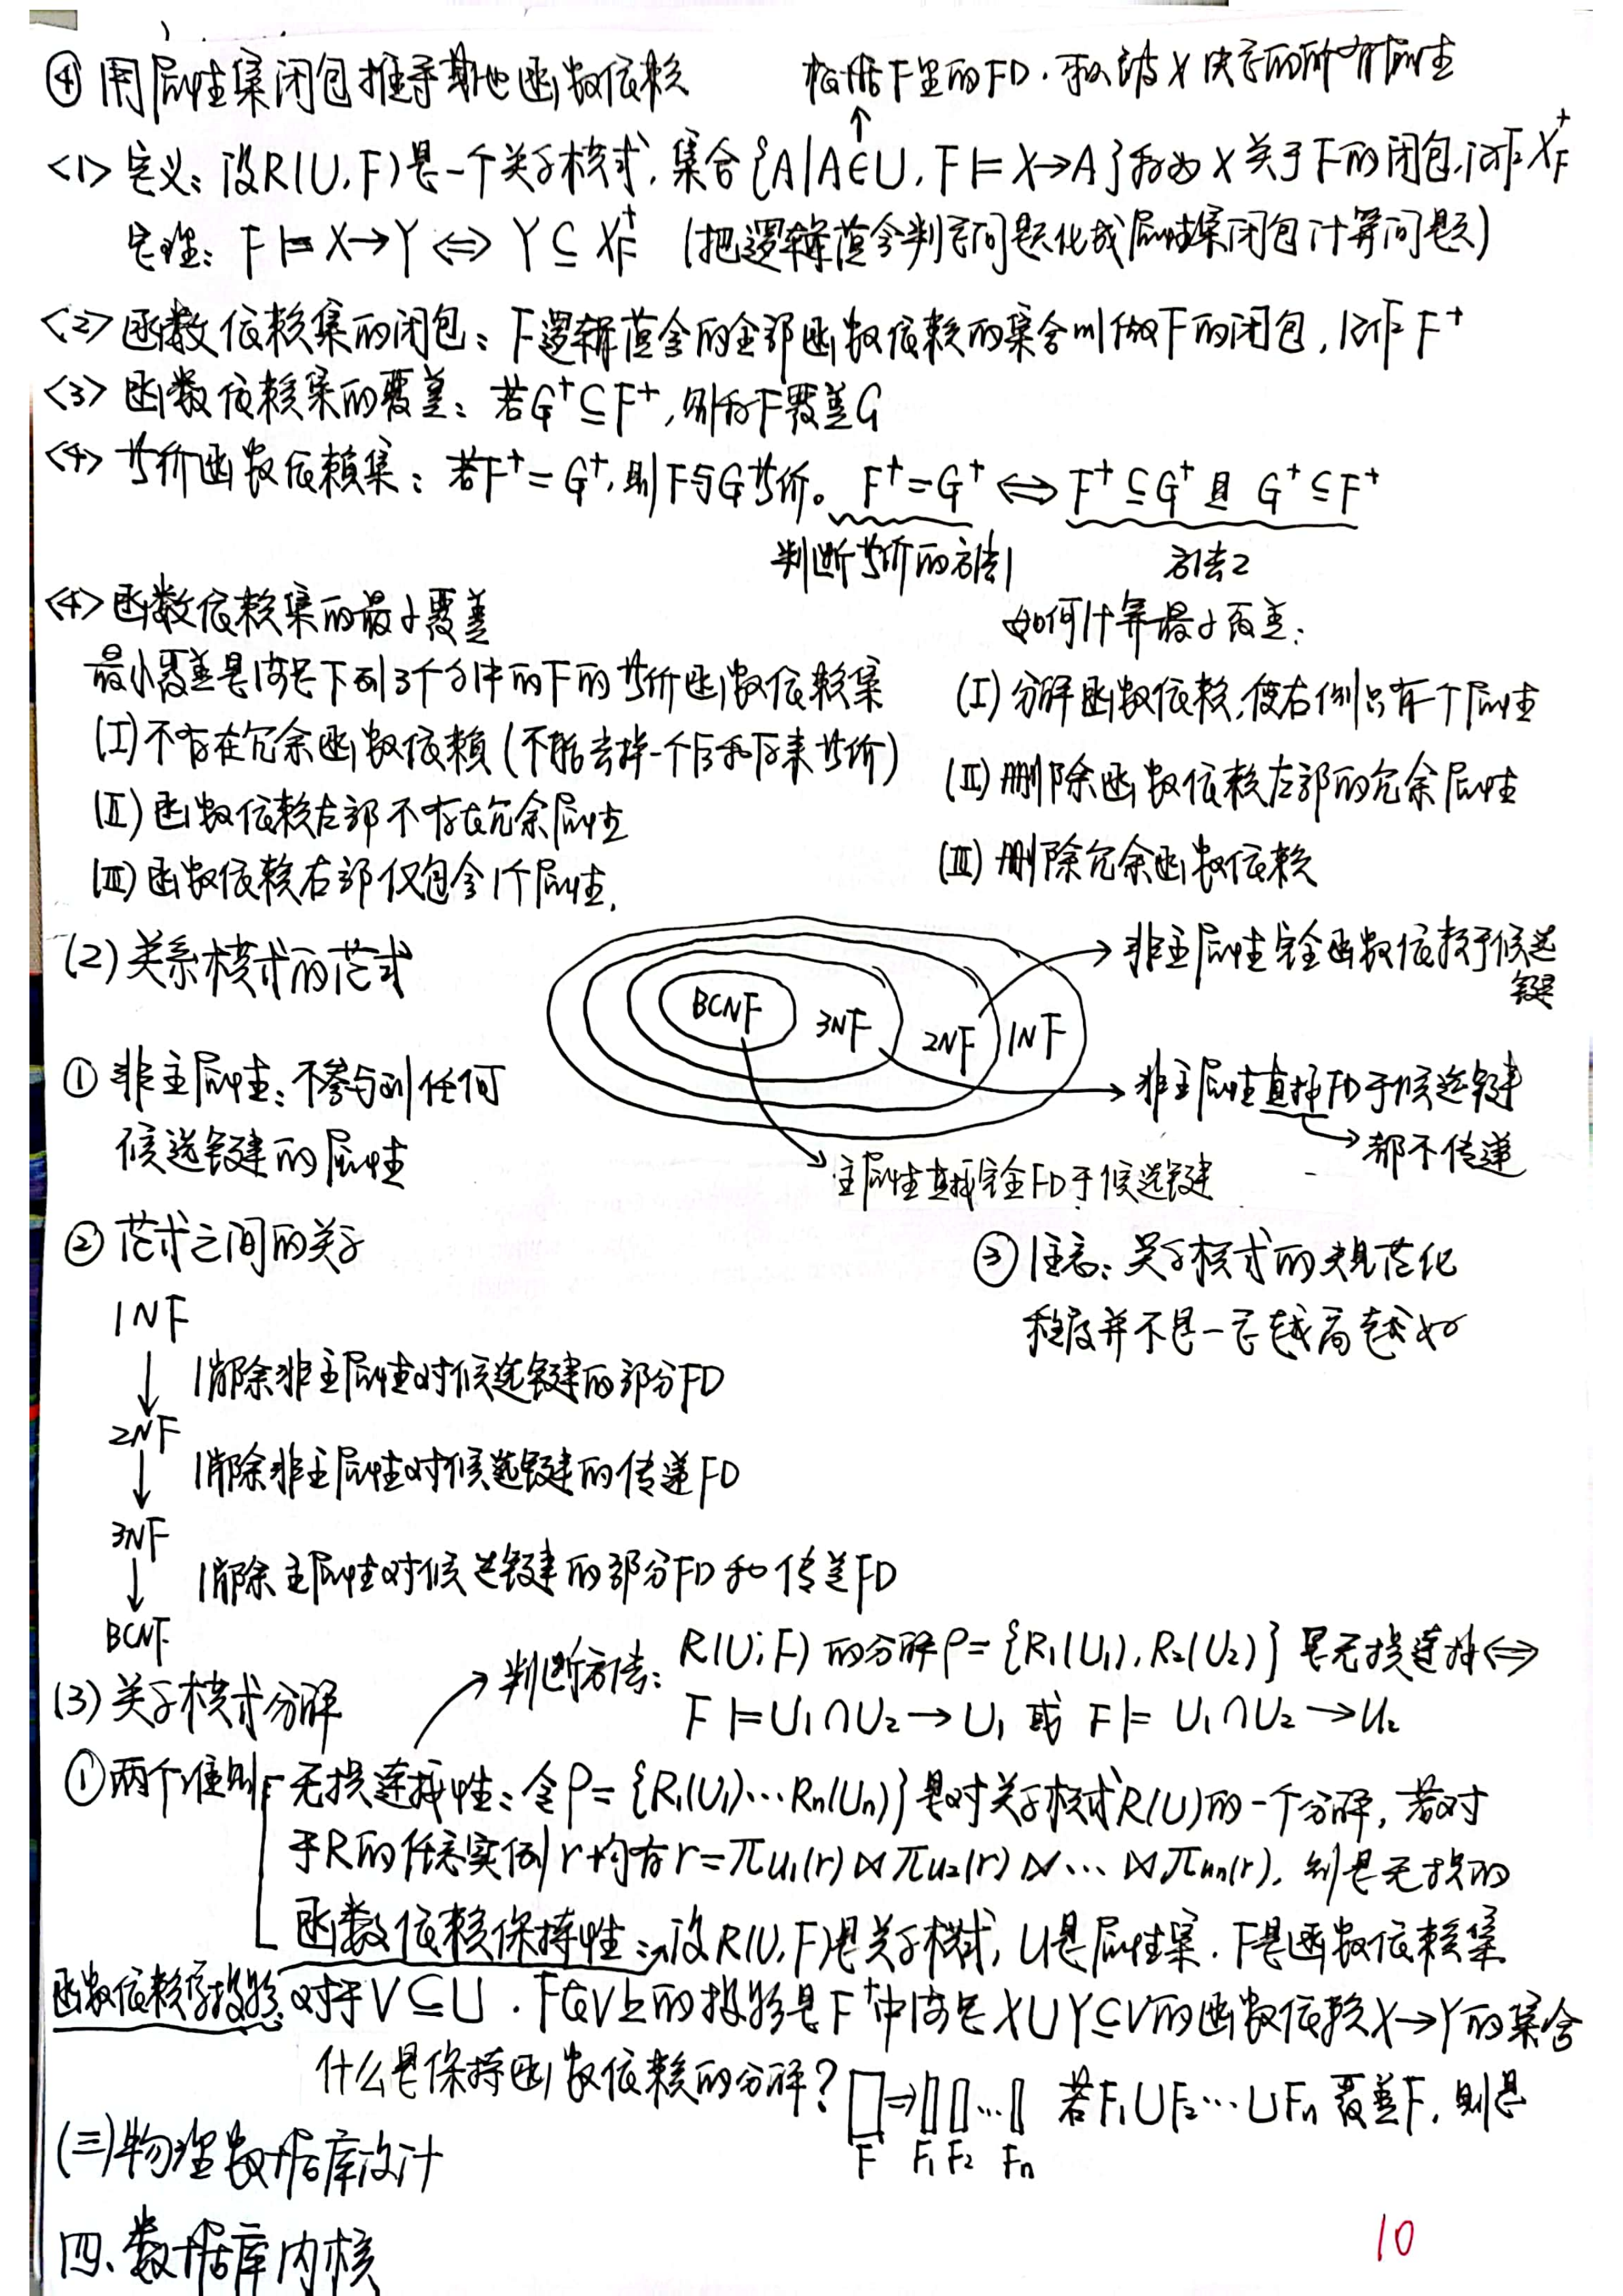 ④ 用属性集闭包推导其他函数依赖
根据F里的FD,求被X决定的所有属性
<1> 定义：设R(U,F)是一个关系模式，集合{A|A∈U, F⊨X→A}称为X关于F的闭包,记作X_F^+
定理：F⊨X→Y ⇔ Y⊆X_F^+ (把逻辑蕴含判定问题化成属性集闭包计算问题)
<2> 函数依赖集的闭包：F逻辑蕴含的全部函数依赖的集合叫做F的闭包，记作F^+
<3> 函数依赖集的覆盖：若G^+⊆F^+，则称F覆盖G
<4> 等价函数依赖集：若F^+=G^+,则F与G等价。F^+=G^+ ⇔ F^+⊆G^+且 G^+⊆F^+
判断等价的方法1 方法2
<4> 函数依赖集的最小覆盖
最小覆盖是满足下列3个条件的F的等价函数依赖集
(I) 不存在冗余函数依赖(不能去掉一个后和原来等价)
(II) 函数依赖左部不存在冗余属性
(III) 函数依赖右部仅包含1个属性.
如何计算最小覆盖:
(I) 分解函数依赖,使右侧只有一个属性
(II) 删除函数依赖左部的冗余属性
(III) 删除冗余函数依赖
(2) 关系模式的范式
BCNF 3NF 2NF 1NF
非主属性完全函数依赖于候选键
非主属性直接FD于候选键
都不传递
主属性直接完全FD于候选键
① 非主属性：不参与到任何
候选键的属性
② 范式之间的关系
1NF
消除非主属性对候选键的部分FD
2NF
消除非主属性对候选键的传递FD
3NF
消除主属性对候选键的部分FD和传递FD
BCNF
③ 注意：关系模式的规范化
程度并不是一定越高越好
(3) 关系模式分解
判断方法：R(U,F)的分解ρ={R₁(U₁),R₂(U₂)}是无损连接⇔
F⊨U₁∩U₂→U₁ 或 F⊨U₁∩U₂→U₂
① 两个准则 无损连接性：令ρ={R₁(U₁)…Rn(Un)}是对关系模式R(U)的一个分解，若对
于R的任意实例r均有r=πu₁(r)⋈πu₂(r)⋈…⋈πun(r),则是无损的
函数依赖保持性：设R(U,F)是关系模式，U是属性集.F是函数依赖集
对于V⊆U.F在V上的投影是F^+中满足X∪Y⊆V的函数依赖X→Y的集合
什么是保持函数依赖的分解？ F F₁ F₂ … Fn 若F₁∪F₂…∪Fn覆盖F,则是
(三)物理数据库设计
四、数据库内核
10